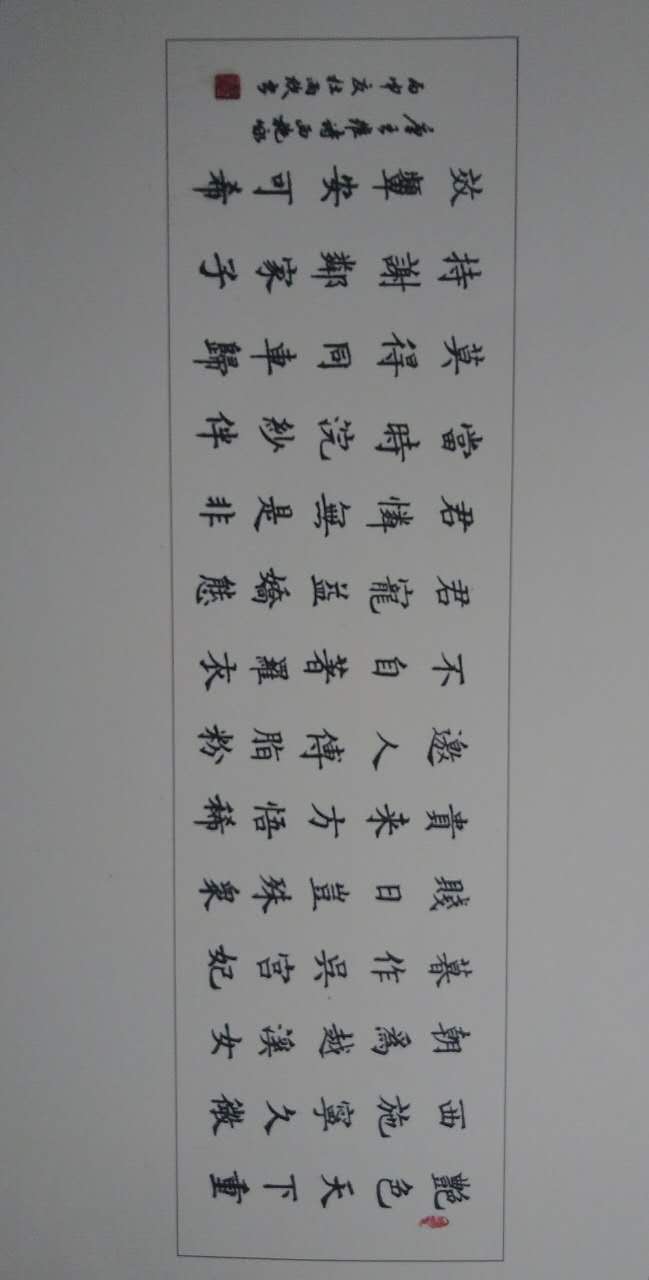 艷色天下重
西施寧久微
朝爲越溪女
暮作吳宮妃
賤日豈殊衆
貴来方悟稀
邀人傅脂粉
不自著羅衣
君寵益嬌態
君憐無是非
當時浣紗伴
莫得同車歸
持謝鄰家子
效顰安可希
唐王維詩西施詠
丙申夏杜雨書